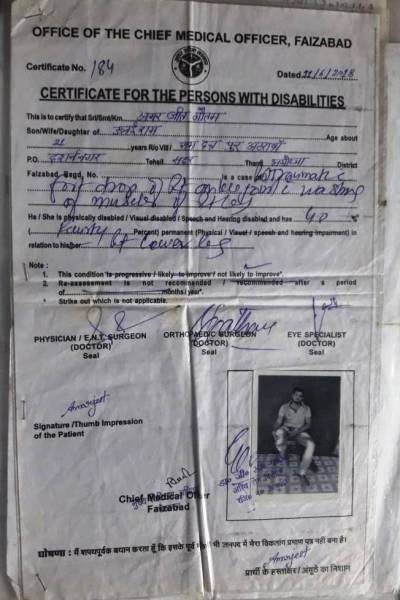 OFFICE OF THE CHIEF MEDICAL OFFICER, FAIZABAD
Certificate No. 184
Dated 21/5/2018
CERTIFICATE FOR THE PERSONS WITH DISABILITIES
This is to certify that Sri/Smt/Km. अमर जीत गौतम
Son/Wife/Daughter of Age about
21 years R/o Vill
P.O. दर्शननगर Tehsil सदर Thana District
Faizabad Regd. No. is a case of
foot drop of Rt ankle wasting
of muscles of Rt leg
He / She is physically disabled / Visual disabled / Speech and Hearing disabled and has 40
( Fourty Percent) permanent (Physical / Visual / speech and hearing impairment) in
relation to his/her Rt lower leg
Note :
1. This condition is progressive / likely to improve / not likely to improve*.
2. Re-assessment is not recommended / recommended after a period
of months / year*.
* Strike out which is not applicable.
PHYSICIAN / E.N.T. SURGEON ORTHOPAEDIC SURGEON EYE SPECIALIST
(DOCTOR) (DOCTOR) (DOCTOR)
Seal Seal Seal
Amarjeet
Signature /Thumb Impression
of the Patient
Chief Medical Officer
Faizabad
घोषणा : मैं शपथपूर्वक बयान करता हूँ कि इसके पूर्व भी जनपद में मेरा विकलांग प्रमाण पत्र नहीं बना है।
Amarjeet
प्रार्थी के हस्ताक्षर / अंगूठे का निशान